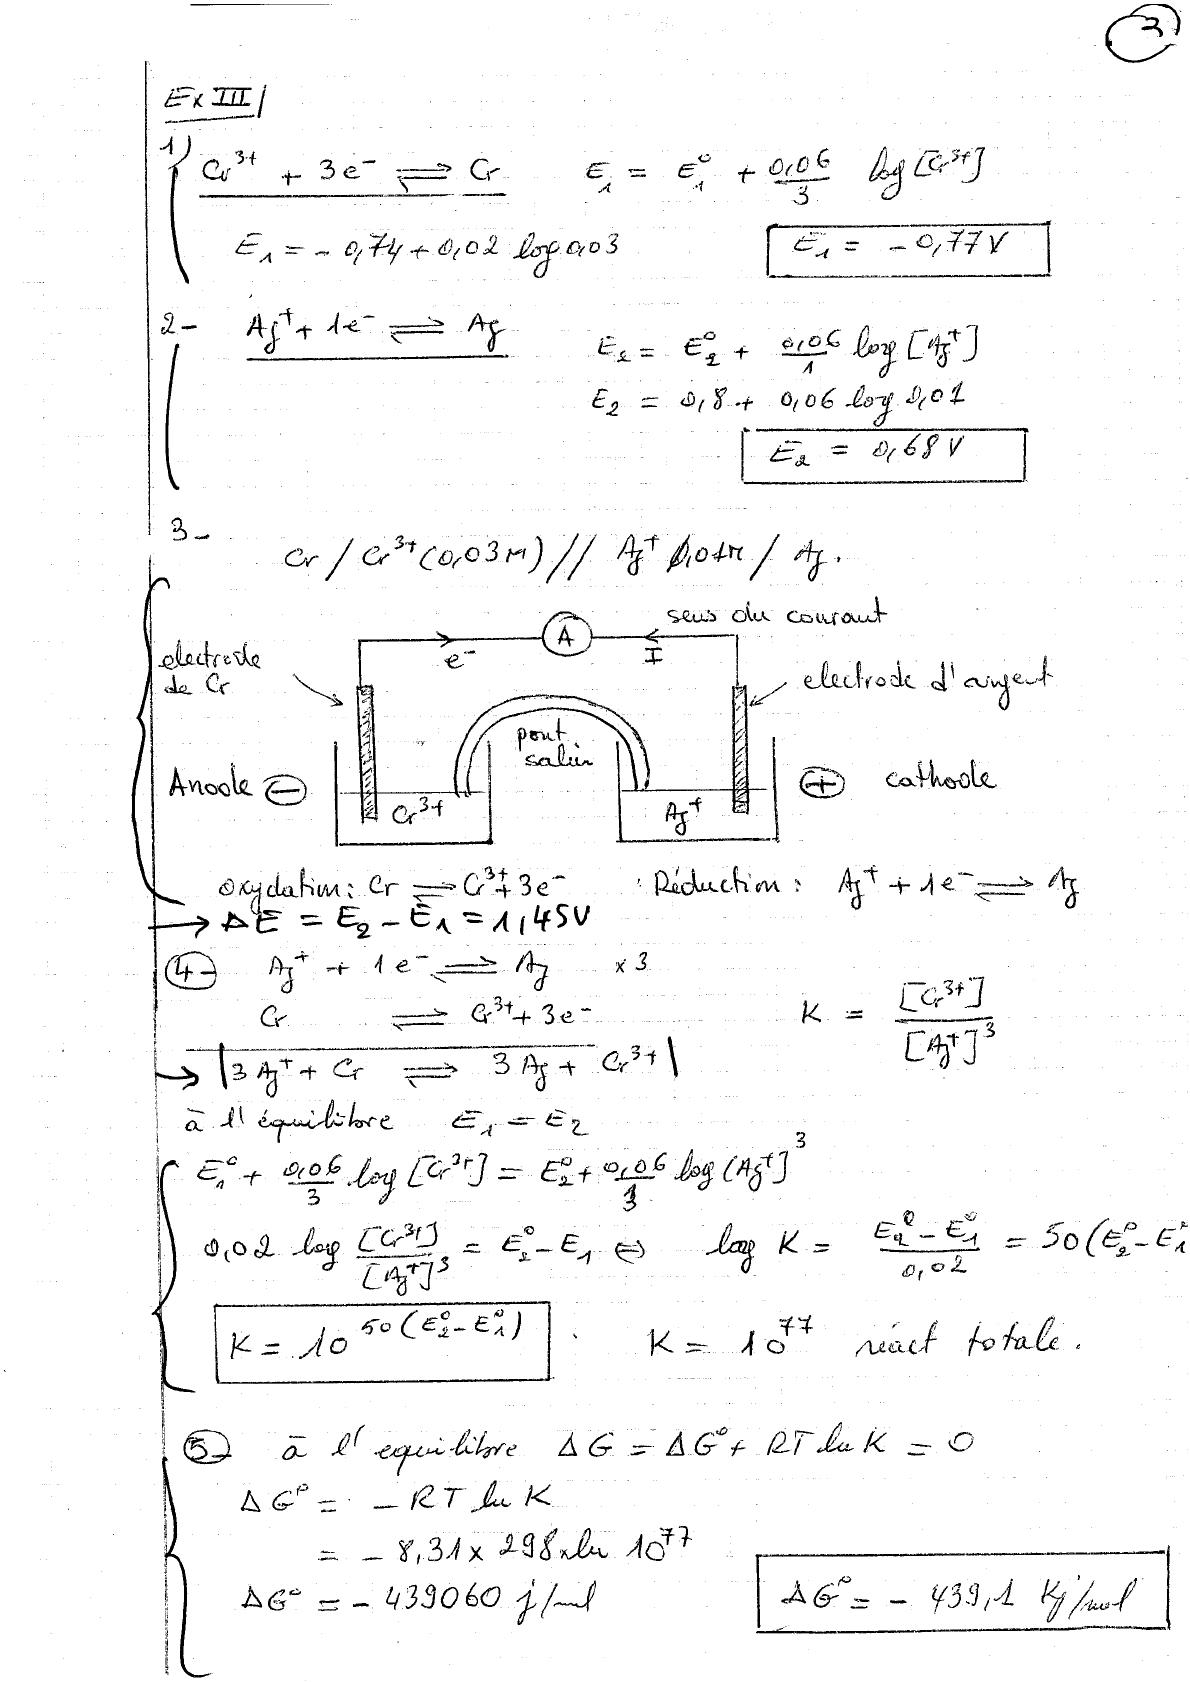 3
Ex III/
1) Cr³⁺ + 3e⁻ ⇌ Cr E₁ = E₁° + 0,06/3 log [Cr³⁺]
E₁ = - 0,74 + 0,02 log 0,03 E₁ = - 0,77 V
2- Ag⁺ + 1e⁻ ⇌ Ag E₂ = E₂° + 0,06/1 log [Ag⁺]
E₂ = 0,8 + 0,06 log 0,01
E₂ = 0,68 V
3-
Cr / Cr³⁺ (0,03 M) // Ag⁺ 0,01 M / Ag.
sens du courant
A
e⁻ I
electrode de Cr
electrode d'argent
pont salin
Anode ⊖ Cr³⁺ Ag⁺ ⊕ cathode
oxydation : Cr ⇌ Cr³⁺ + 3e⁻ Réduction : Ag⁺ + 1e⁻ ⇌ Ag
→ ΔE = E₂ - E₁ = 1,45V
4- Ag⁺ + 1e⁻ ⇌ Ag x 3
Cr ⇌ Cr³⁺ + 3e⁻ K = [Cr³⁺]/[Ag⁺]³
→ |3 Ag⁺ + Cr ⇌ 3 Ag + Cr³⁺|
à l'équilibre E₁ = E₂
E₁° + 0,06/3 log [Cr³⁺] = E₂° + 0,06/3 log (Ag⁺]³
0,02 log [Cr³⁺]/[Ag⁺]³ = E₂° - E₁ ⇔ log K = E₂° - E₁°/0,02 = 50 (E₂° - E₁°
K = 10^50 (E₂° - E₁°) . K = 10⁷⁷ réact totale.
5- à l'equilibre ΔG = ΔG° + RT ln K = 0
ΔG° = - RT ln K
= - 8,31 x 298 x ln 10⁷⁷
ΔG° = - 439060 j/mol ΔG° = - 439,1 Kj/mol